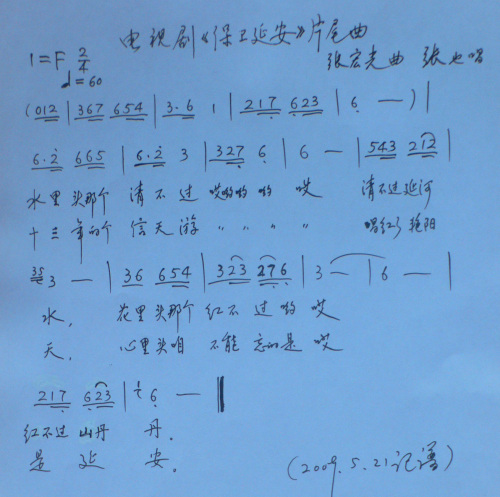 电视剧《保卫延安》片尾曲
1=F 2/4
♩=60
张宏光曲 张也唱
(012 | 367 654 | 3·6 1 | 217 623 | 6 — ) |
6·2 665 | 6·2 3 | 327 6 | 6 — | 543 212 |
水里头那个 清不过 哎哟哟哟 哎 清不过延河
十三年的个 信天游 〃 〃 〃 〃 唱红了艳阳
35 3 — | 36 654 | 323 276 | 3 — | 6 — |
水, 花里头那个 红不过哟哎
天, 心里头咱 不能忘的是哎
217 623 | 1 6 — ‖
红不过山丹 丹.
是延安.
(2009.5.21记谱)